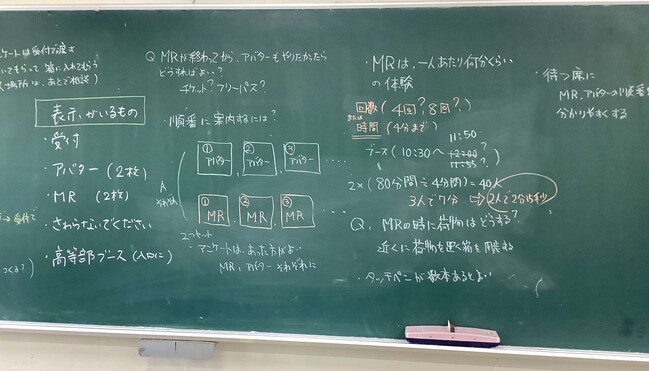 ンケートは受付で渡す
いてもらって 箱に入れてもらう
場所は、あとで相談)
表示がいるもの
・受付
・アバター (2枚)
・MR (2枚)
・さわらないでください
・高等部ブース (入口に)
受付で
つくる?)
Q MRが終わってから、アバターもやりたかったら
どうすればよい?
チケット? フリーパス?
・順番に案内するには?
① アバター ② アバター ③ アバター ・・・・
① MR ② MR ③ MR ・・・・
2つセット
・アンケートは、あった方がよい
MR、アバター それぞれに
・MRは、一人あたり何分くらい
の体験
回数 (4回? 8回?)
または
時間 (4分まで)
11:50
ブース (10:30〜 12:00?
11:55?
2×(80分間÷4分間)=40人
3人で7分 ⇒ 2人で2分15秒
Q. MRの時に荷物はどうする?
近くに荷物を置く箱を用意する
・タッチペンが数本あるとよい
・待つ席に
MR、アバターの順番を
分かりやすくする